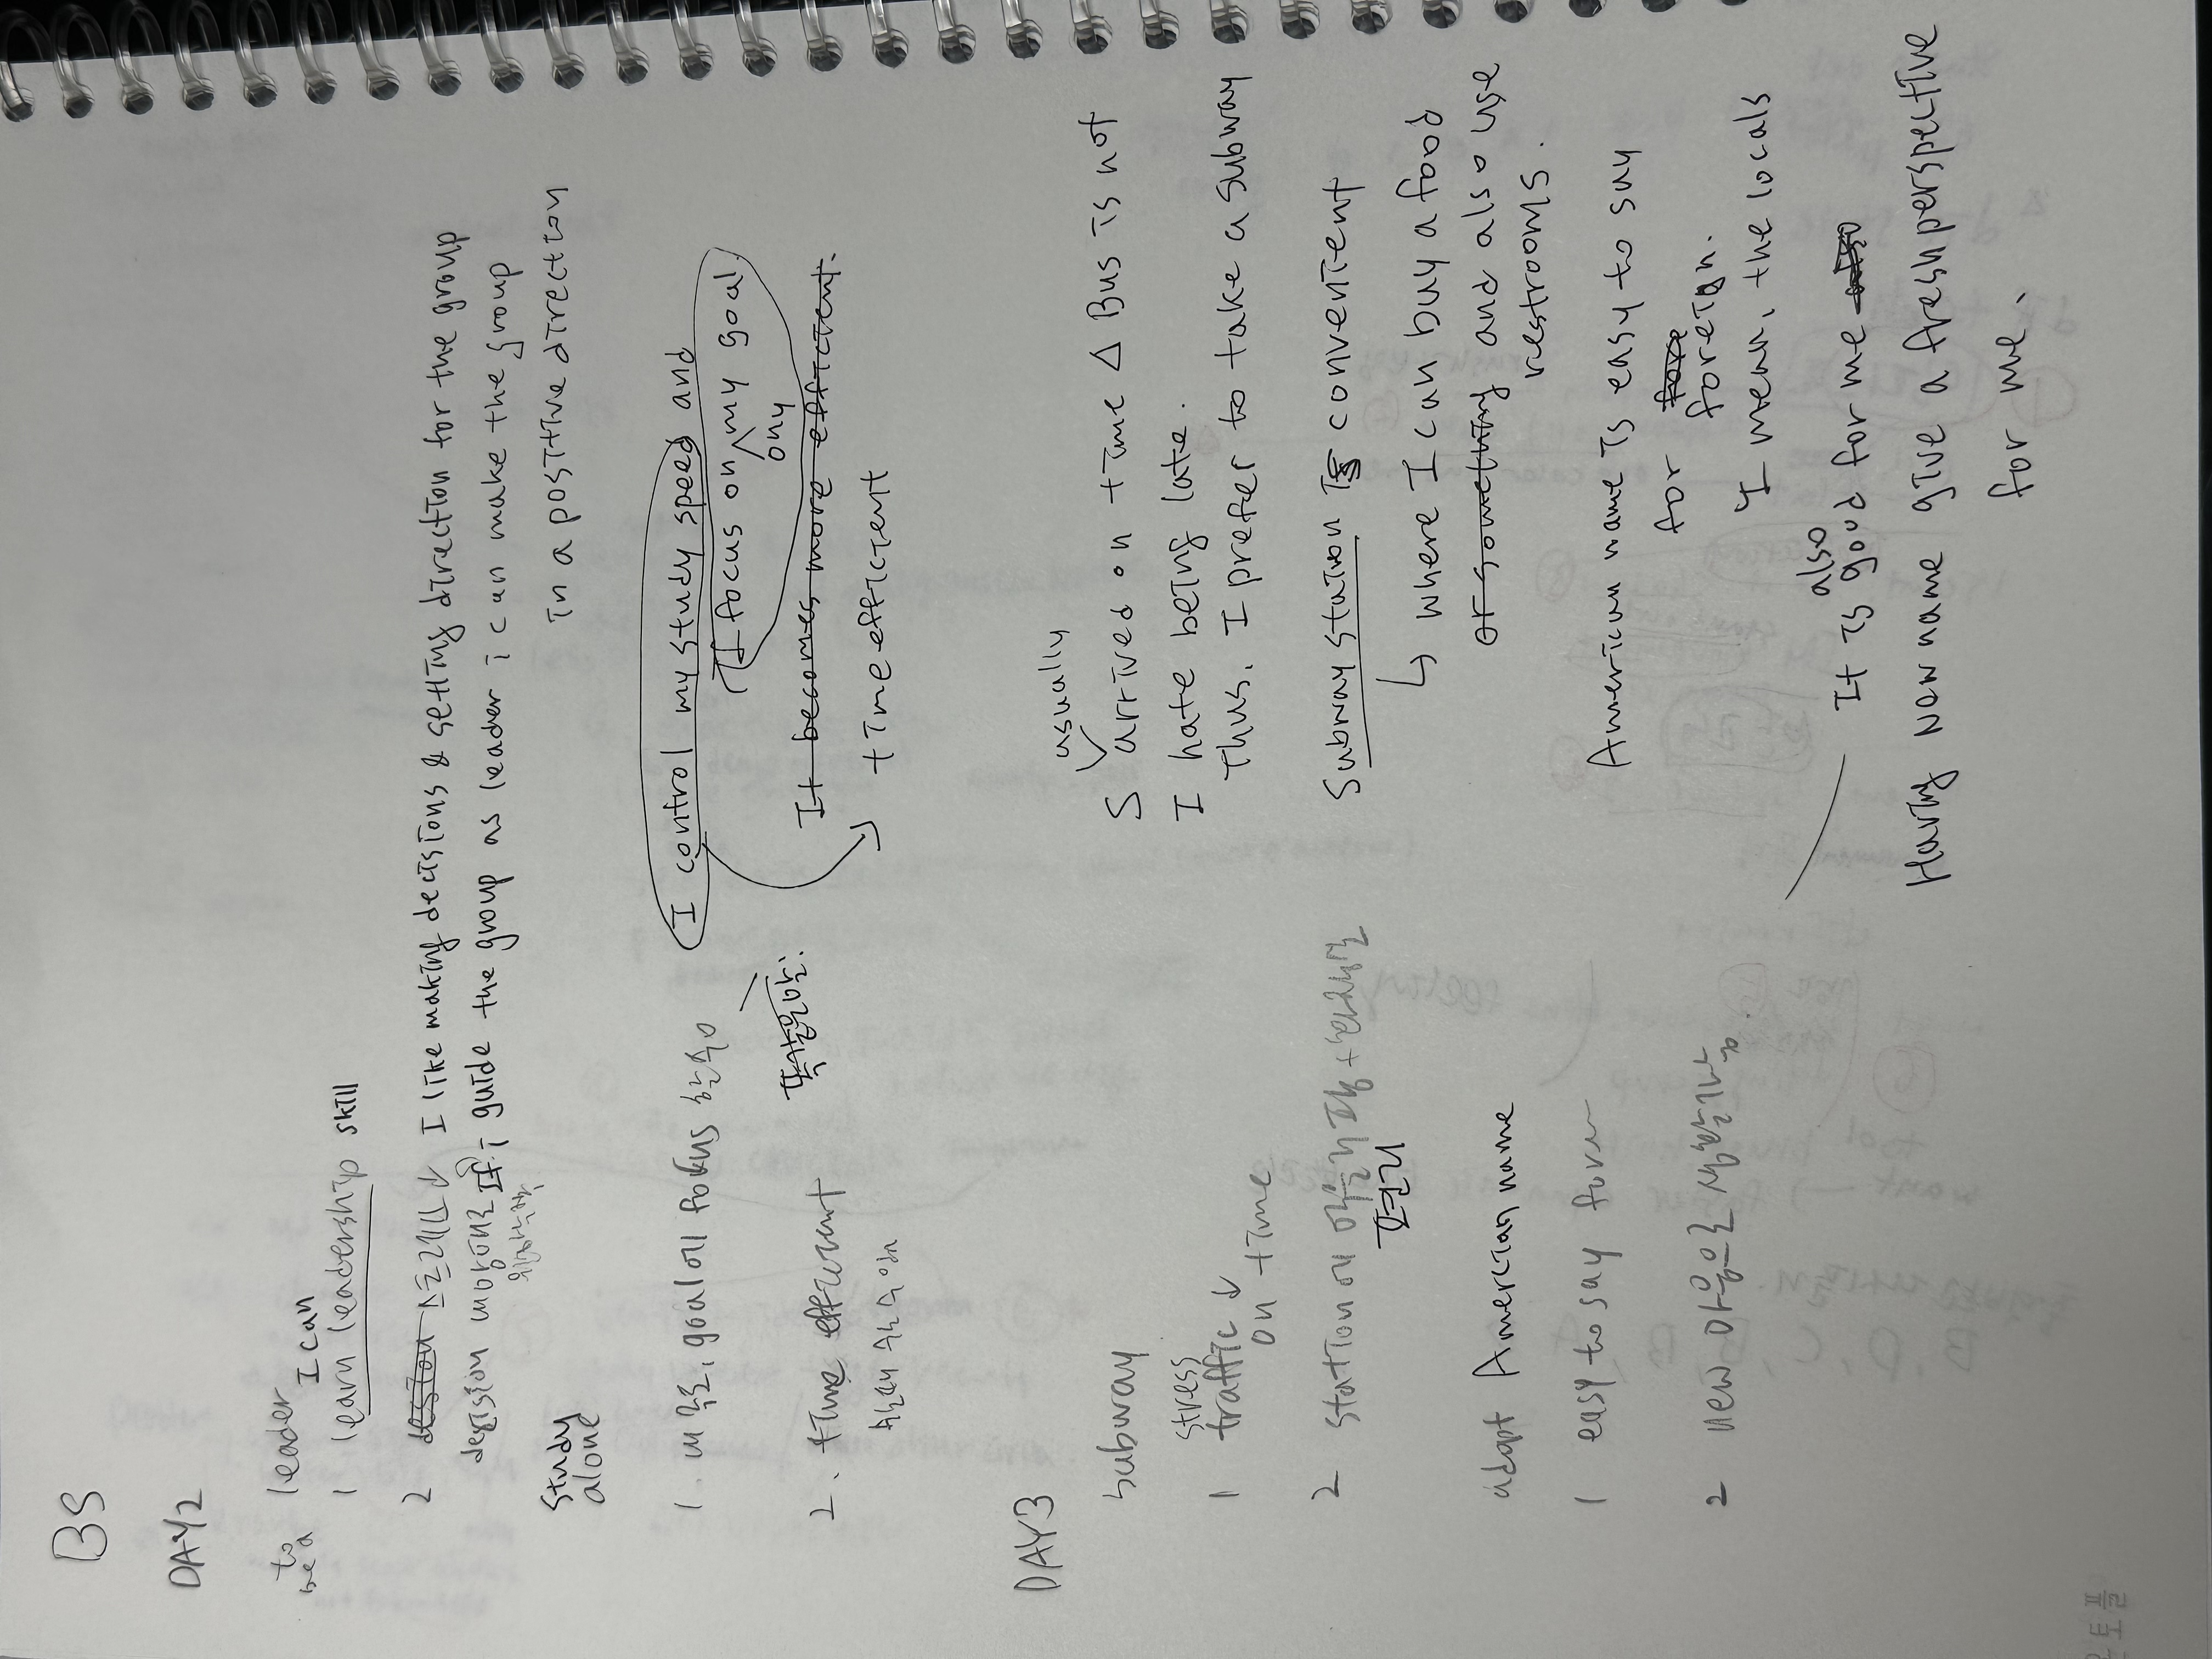 BS
DAY2
to be a leader
I can
1 learn leadership skill
2 desion 스트레스 ↓ I like making decisions & setting direction for the group
desision 방향으로 If i guide the group as leader i can make the group
in a positive direction
study alone
1. 내 속도, goal에 fokus 할 수 o
I control my study speed and
I focus on my goal.
only
It becomes more efficient.
2. time efficient
시간 절약
time efficient
DAY3
subway
stress
1 traffic ↓
on time
usually
S arrived on time △ Bus is not
I hate being late.
Thus, I prefer to take a subway
2 station
편리
Subway station is convenient
↳ where I can buy a food
or something and also use
restrooms.
adopt American name
1 easy to say
American name is easy to say
for foreign.
I mean, the locals
2 new 마음으로 생활 가능.
also
It is good for me
Having new name give a fresh perspective
for me.